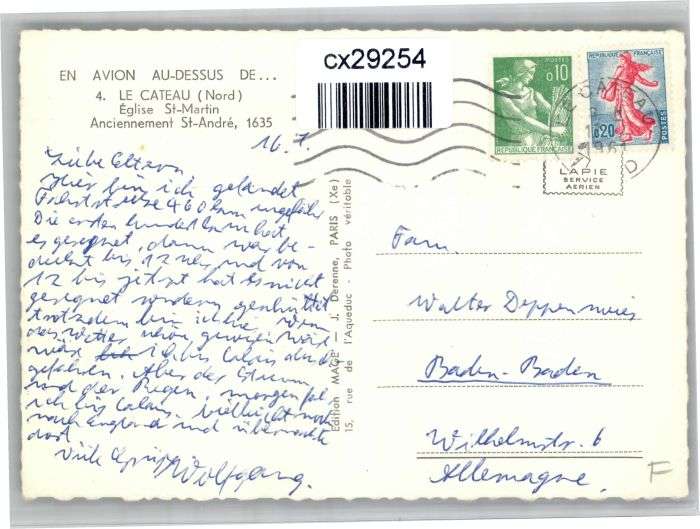 cx29254
EN AVION AU-DESSUS DE...
4. LE CATEAU (Nord)
Église St-Martin
Anciennement St-André, 1635
POSTES
0,10
REPUBLIQUE FRANÇAISE
REPUBLIQUE FRANÇAISE
0,20
POSTES
LAPIE
SERVICE
AERIEN
16.7.
Liebe Eltern
Hier bin ich gelandet
Fahrstrecke 460 km ungefähr
Die ersten hundert km hat
es geregnet, dann war be-
deckt bis 12 Uhr und von
12 bis jetzt hat es nicht
geregnet sondern geschüttet
trotzdem bin ich
das Wetter schön gewesen wär
wär ich bis Calais durch
gefahren. Aber der Sturm
und der Regen, morgen fahr
ich bis Calais. Vielleicht noch
nach England und übernachte
dort
Viele Grüsse Wolfgang.
Edition MAGE - J. Derenne, PARIS (Xe)
15, rue de l'Aqueduc - Photo véritable
Fam.
Walter Deppenweis
Baden-Baden
Wilhelmstr. 6
Allemagne.
F